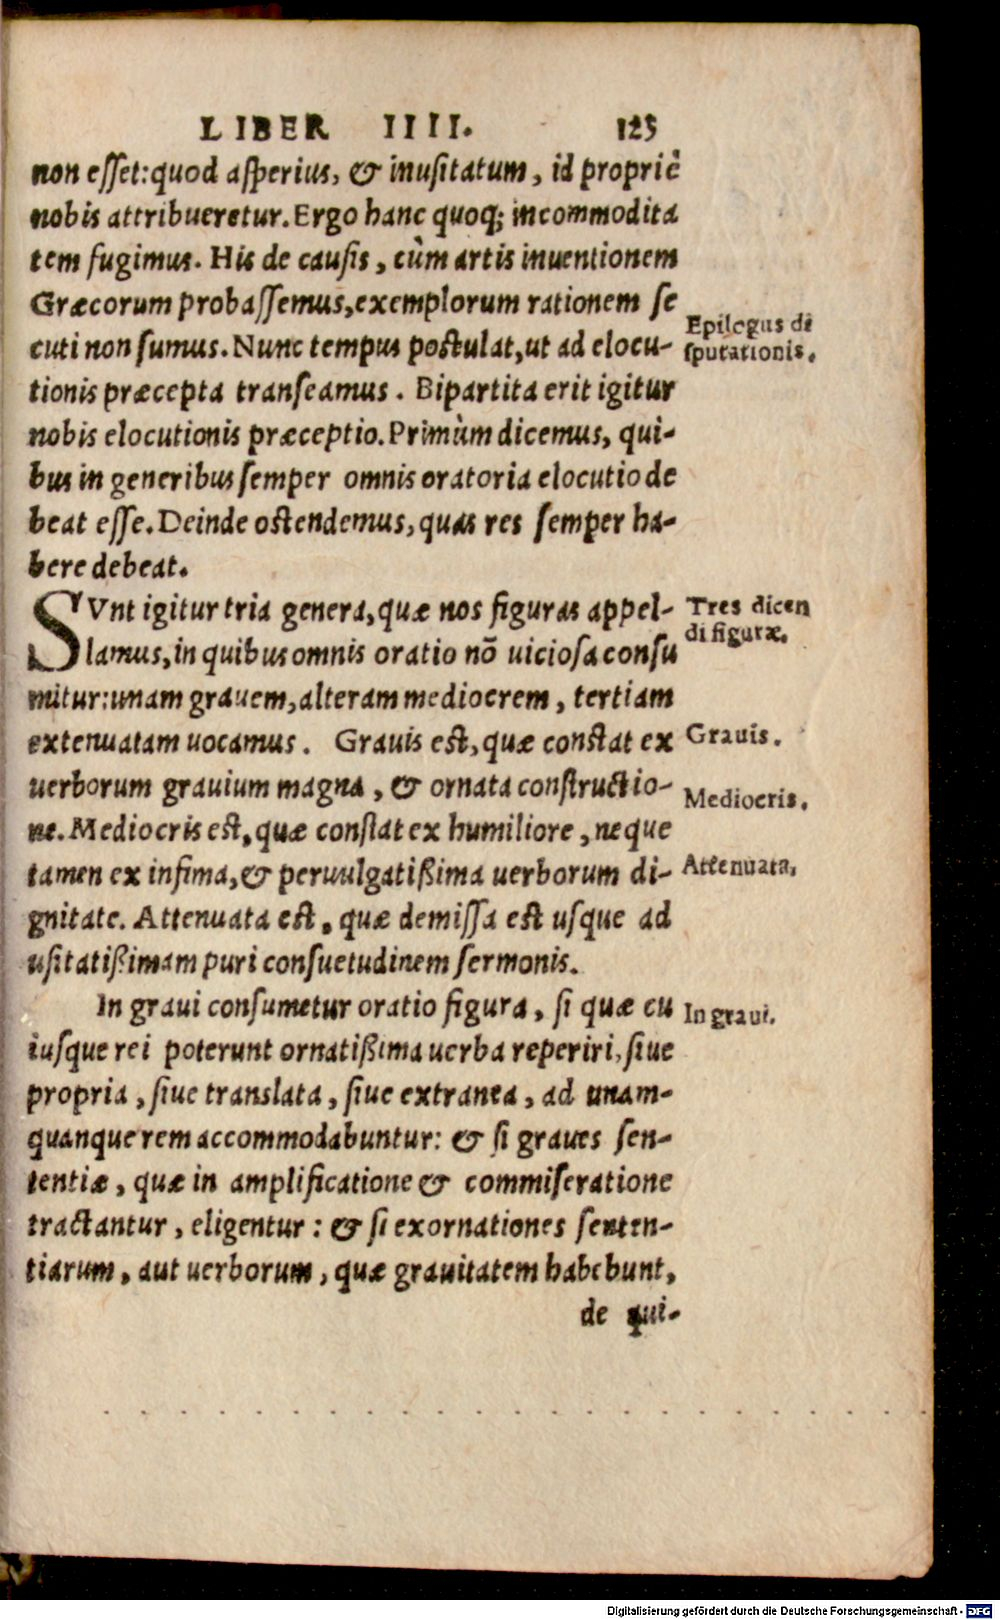 LIBER IIII. 123
non esset: quod asperius, & inusitatum, id propriè
nobis attribueretur. Ergo hanc quoq; incommodita
tem fugimus. His de causis, cùm artis inuentionem
Græcorum probassemus, exemplorum rationem se
cuti non sumus. Nunc tempus postulat, ut ad elocu-
tionis præcepta transeamus. Bipartita erit igitur
nobis elocutionis præceptio. Primùm dicemus, qui-
bus in generibus semper omnis oratoria elocutio de
beat esse. Deinde ostendemus, quas res semper ha-
bere debeat.
Epilogus di
sputationis.
SVnt igitur tria genera, quæ nos figuras appel-
lamus, in quibus omnis oratio nõ uiciosa consu
mitur: unam grauem, alteram mediocrem, tertiam
extenuatam uocamus. Grauis est, quæ constat ex
uerborum grauium magna, & ornata constructio-
ne. Mediocris est, quæ constat ex humiliore, neque
tamen ex infima, & peruulgatißima uerborum di-
gnitate. Attenuata est, quæ demissa est usque ad
usitatißimam puri consuetudinem sermonis.
Tres dicen
di figuræ.
Grauis.
Mediocris.
Attenuata.
In graui consumetur oratio figura, si quæ cu
iusque rei poterunt ornatißima uerba reperiri, siue
propria, siue translata, siue extranea, ad unam-
quanque rem accommodabuntur: & si graues sen-
tentiæ, quæ in amplificatione & commiseratione
tractantur, eligentur: & si exornationes senten-
tiarum, aut uerborum, quæ grauitatem habebunt,
In graui.
de qui-
Digitalisierung gefördert durch die Deutsche Forschungsgemeinschaft - DFG